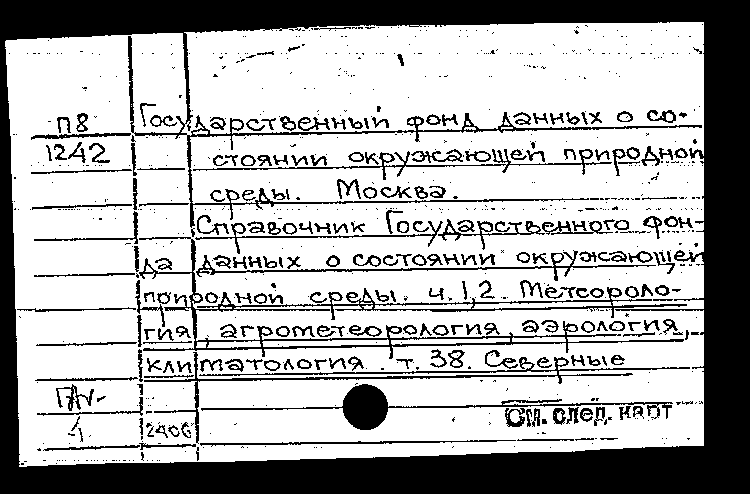 П8
1242
Государственный фонд данных о со-
стоянии окружающей природной
среды. Москва.
Справочник Государственного фон-
да данных о состоянии окружающей
природной среды. ч. 1,2. Метеороло-
гия, агрометеорология, аэрология,
климатология. т. 38. Северные
1
2406
См. след. карт